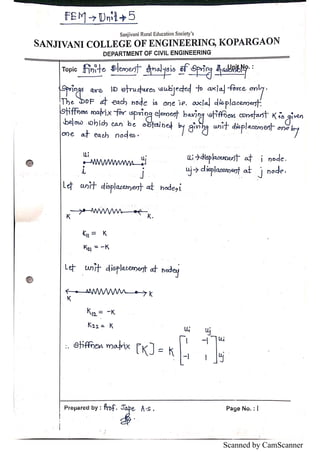 FEM → Unit → 5
Sanjivani Rural Education Society's
SANJIVANI COLLEGE OF ENGINEERING, KOPARGAON
DEPARTMENT OF CIVIL ENGINEERING
Topic Finite Element Analysis of Spring Unit No. :
Springs are 1D structures subjected to axial force only.
The DOF at each node is one ie. axial displacement.
Stiffness matrix for spring element having stiffness constant K is given
below which can be obtained by giving unit displacement one by
one at each nodes.
ui uj ui → displacement at i node.
i j uj → displacement at j node.
Let unit displacement at node, i
K K.
K11 = K
K21 = -K
Let unit displacement at node j
K K
K12 = -K
K22 = K
ui uj
∴ Stiffness matrix [K] = K [1 -1] ui
[-1 1] uj
Prepared by : Prof. Jape A.S. Page No. : 1
Scanned by CamScanner